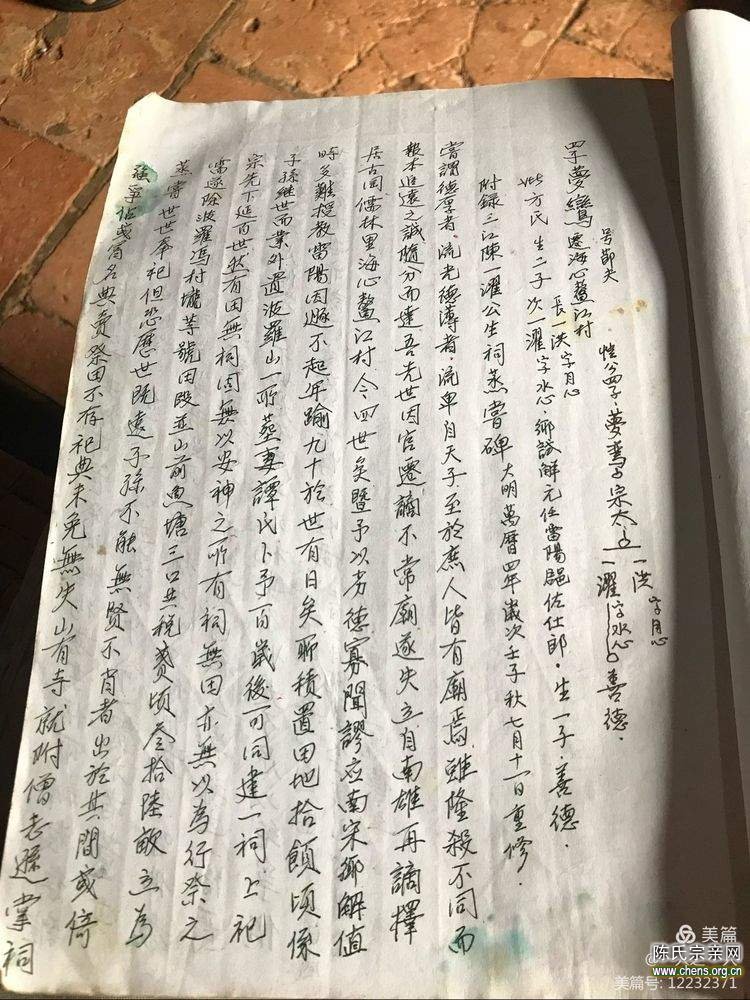 四子夢鸞遷海心鰲江村
号節夫
性公四子·夢鸾子宗大子
一洪字月心
一濯字水心子善德·
長一洪字月心
妣方氏生二子次一濯字水心·鄉試解元任雷陽郡佐仕郎·生一子·善德·
附录三江陳一濯公生祠蒸嘗碑 大明萬曆四年歲次壬子秋七月十一日重修·
嘗謂德厚者·流光德薄者·流卑自天子至於庶人皆有廟焉雖隆殺不同而
報本追遠之誠隨分而達吾先世因官遷謫不常廟遂失立自南雄再謫擇
居古岡儒林里海心鰲江村今四世矣暨予以劣德寡聞謬应南宋鄉解值
時多難授教雷陽因避不起年踰九十於世有日矣聊積置田地拾餘頃俵
子孫继世而業外置波羅山一所塟妻譚氏卜予百歲後可同建一祠上祀
宗先下延百世然有田無祠固無以安神之所有祠無田亦無以為行祭之
需遂除波羅馮村壠等號田段並山前魚塘三口共税貳頃叁拾陸畝立為
蒸嘗世世奉祀但恐歷世既遠子孫不能無賢不肖者出於其間或倚
強爭佔或冒名典賣祭田不存祀典未免無失山有寺就附僧志遜掌祠
美篇
陈氏宗亲网
www.chens.org.cn
美篇号: 12232371